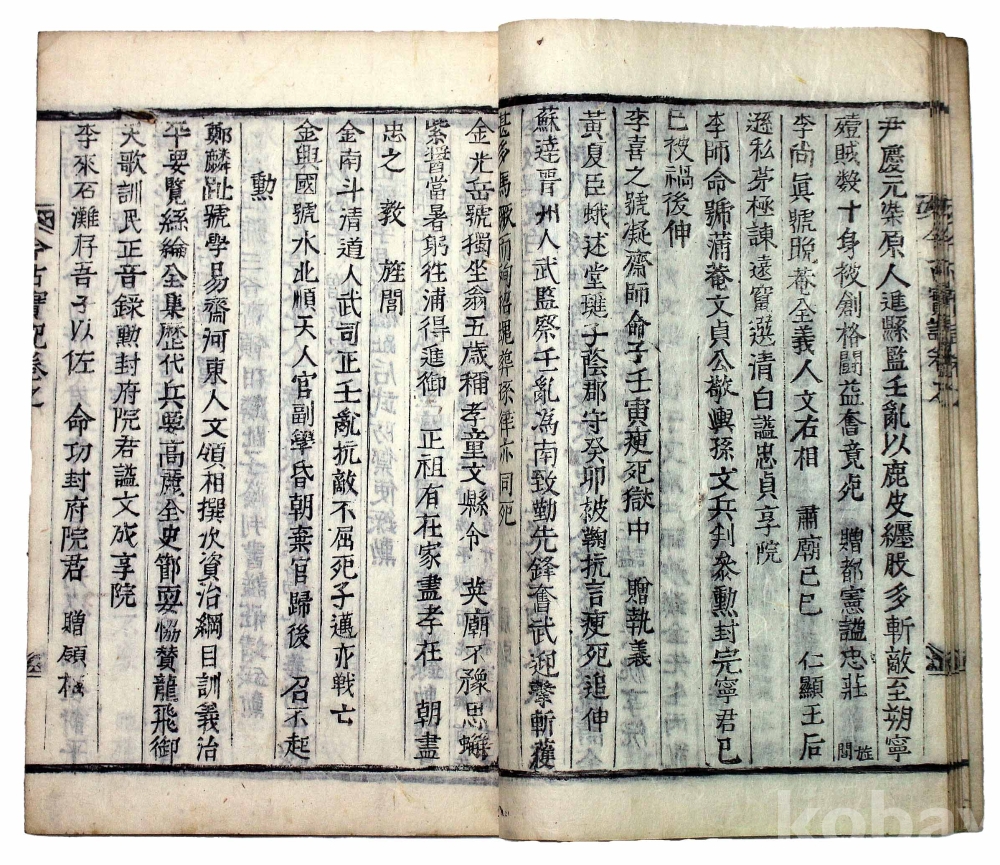 尹慶元柒原人進縣監壬亂以鹿皮纏股多斬敵至朔寧
殪賊数十身被創格鬪益奮竟死 贈都憲謚忠莊 旌閭
李尚眞號晩菴全義人文右相 肅廟己巳 仁顯王后
遜私茅極諫遠竄選清白謚忠貞享院
李師命號蒲菴文貞公敬輿孫文兵判叅勳封完寧君己
巳被禍後伸
李喜之號凝齋師命子壬寅瘐死獄中 贈執義
黃夏臣蛾述堂璡子蔭郡守癸卯被鞠抗言瘐死追伸
蘇逹晋州人武監察壬亂爲南致勤先鋒奮武迎擊斬獲
甚多馬蹶而殉 孫 亦同死
金光岳號獨坐翁五歲稱孝童文縣令 英廟不豫思蠏
紫醬當暑躬徃浦得進御 正祖有在家盡孝在 朝盡
忠之 教 旌閭
金南斗清道人武司正壬亂抗敵不屈死子邁亦戦亡
金興國號水北順天人官副率昏朝棄官歸後 召不起
勲
鄭麟趾號學易齋河東人文領相撰次資治綱目訓義治
平要覧絲綸全集歷代兵要高麗全史節要恊賛龍飛御
天歌訓民正音録勳封府院君謚文成享院
李來石灘存吾子以佐 命功封府院君 贈領相
kobay